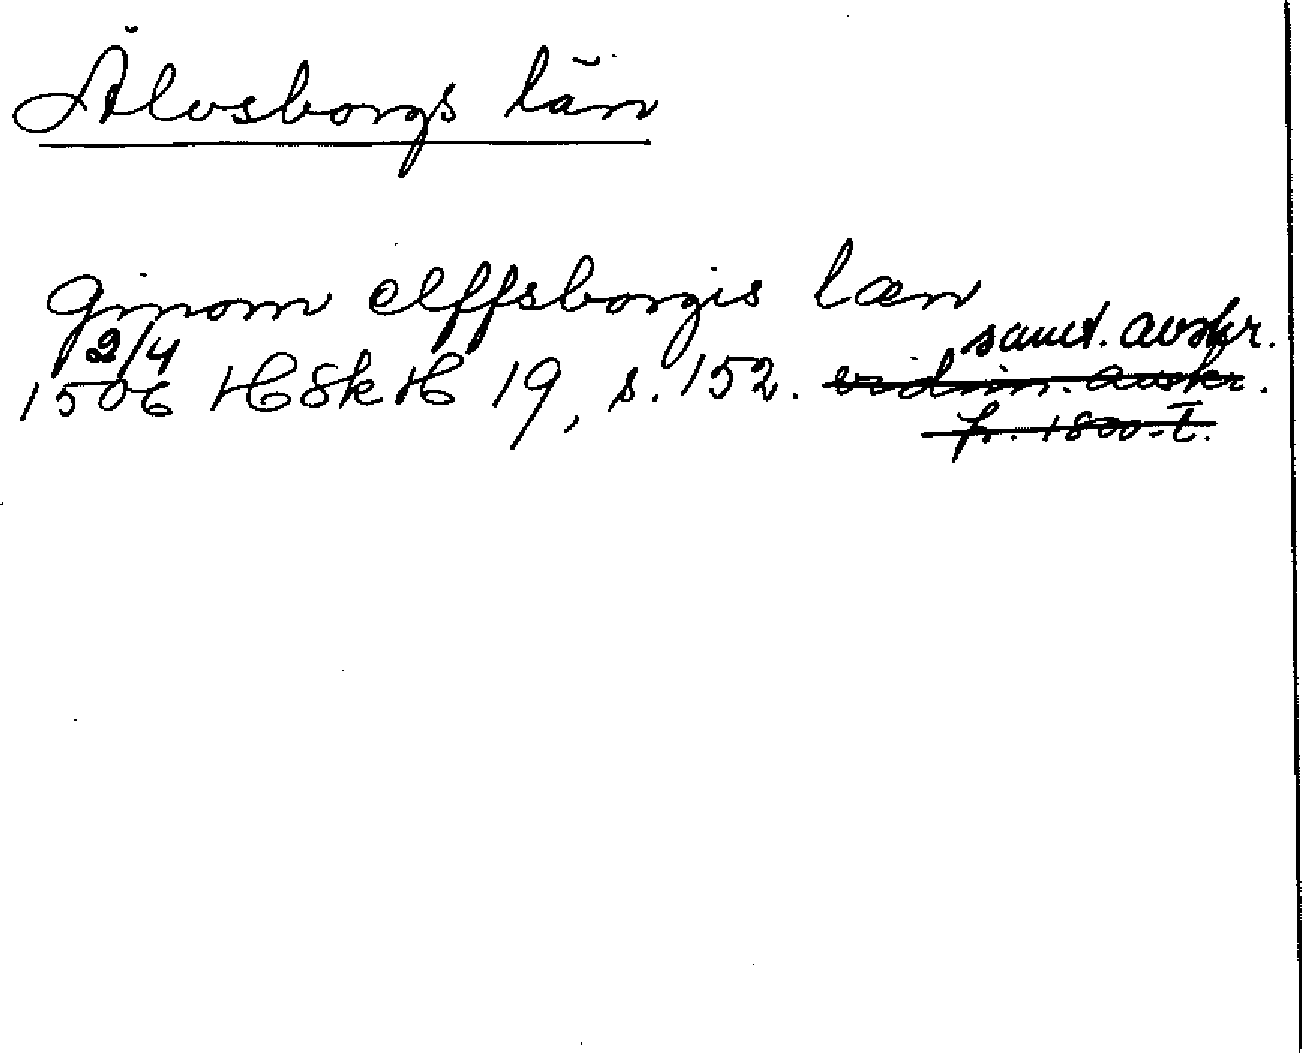 Älvsborgs län
ginom elffsborgis læn
1506 2/4 HSkH 19, s. 152. samt. avskr.
vidim. avskr.
fr. 1800-t.